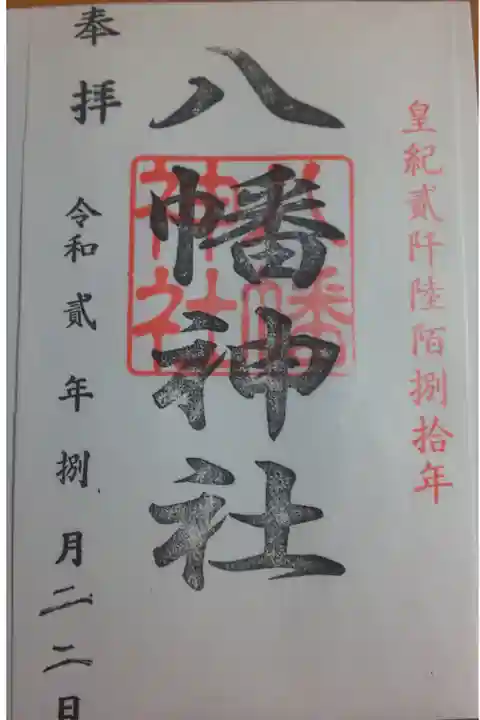 皇紀貳阡陸陌捌拾年
八幡神社
八幡
神社
奉拝
令和貳年捌月二二日